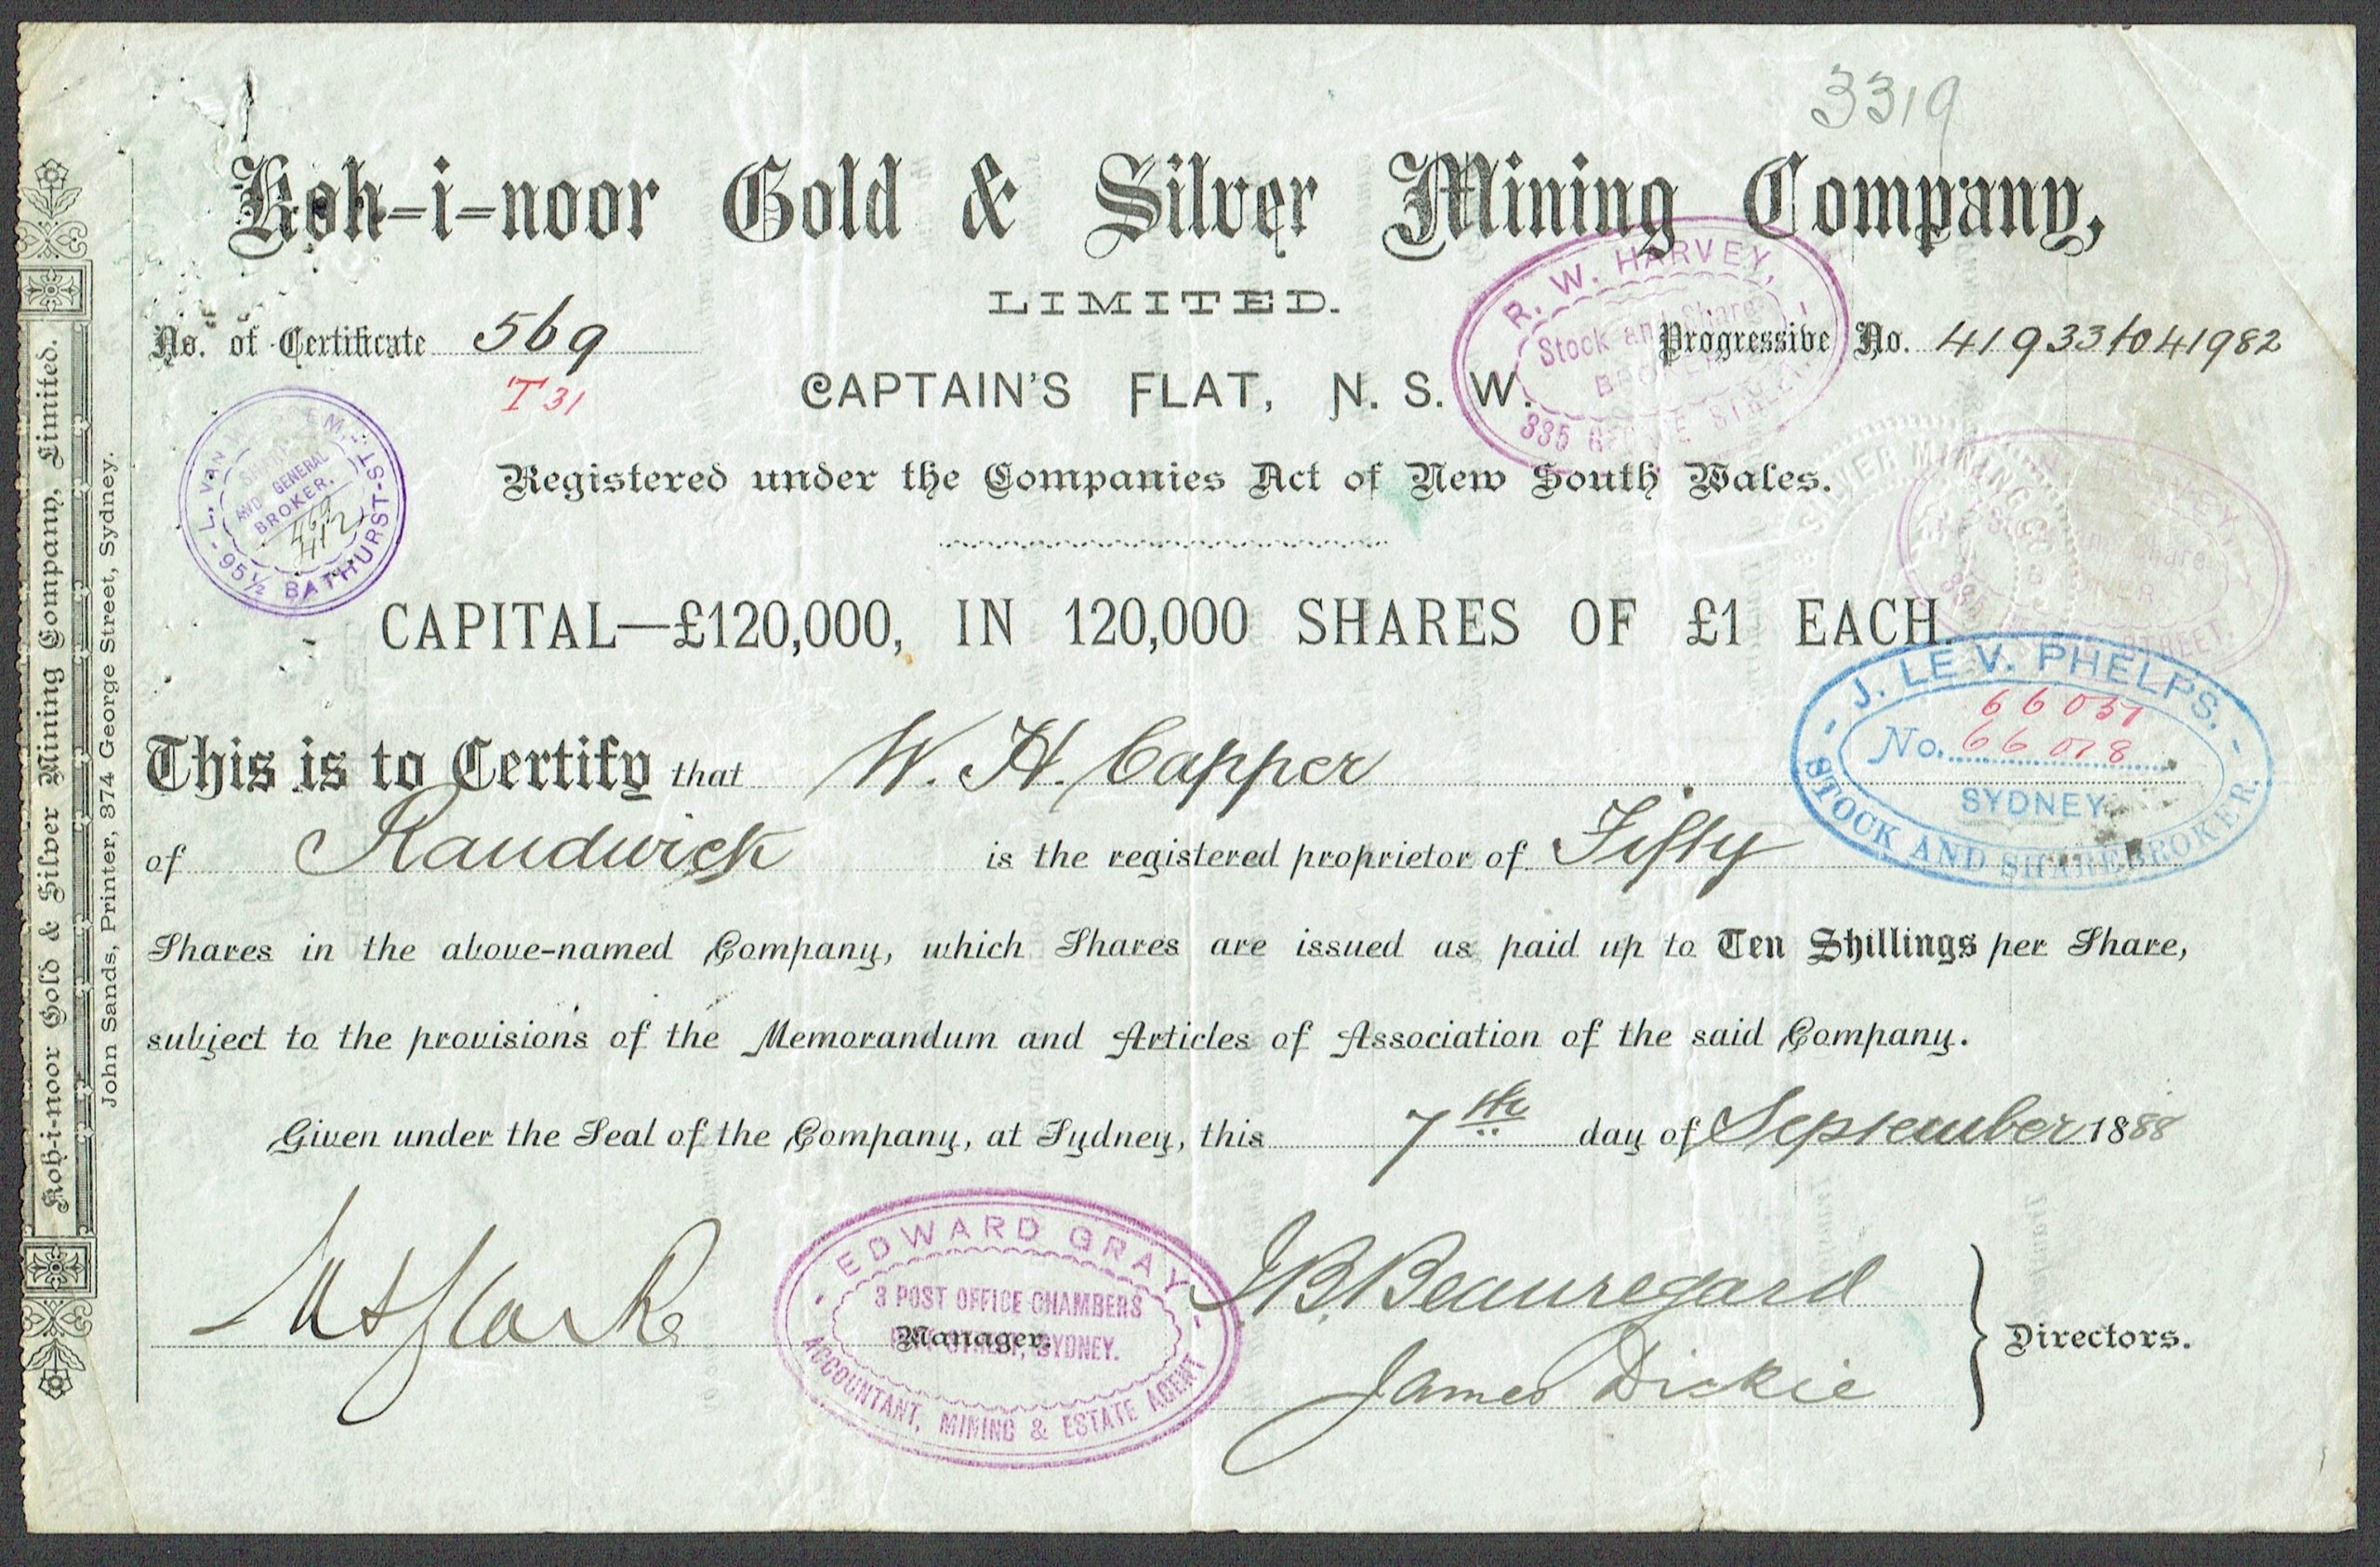 3319
Koh-i-noor Gold & Silver Mining Company,
LIMITED.
No. of Certificate 569
Progressive No. 41933 to 41982
T 31
CAPTAIN'S FLAT, N. S. W.
R. W. HARVEY,
Stock and Share
BROKER
335 GEORGE STREET
Registered under the Companies Act of New South Wales.
L. VAN
SHARE
AND GENERAL
BROKER.
95½ BATHURST-ST.
SILVER MINING CO
Stock and Share
BROKER
STREET.
CAPITAL—£120,000, IN 120,000 SHARES OF £1 EACH.
J. LE V. PHELPS.
No.
SYDNEY
STOCK AND SHAREBROKER.
This is to Certify that W. H. Capper
of Randwick is the registered proprietor of Fifty
Shares in the above-named Company, which Shares are issued as paid up to Ten Shillings per Share,
subject to the provisions of the Memorandum and Articles of Association of the said Company.
Given under the Seal of the Company, at Sydney, this 7th day of September 1888
EDWARD GRAY
3 POST OFFICE CHAMBERS
STREET, SYDNEY.
ACCOUNTANT, MINING & ESTATE AGENT
Manager.
J.B. Beauregard
James Dickie
Directors.
Koh-i-noor Gold & Silver Mining Company, Limited.
John Sands, Printer, 374 George Street, Sydney.